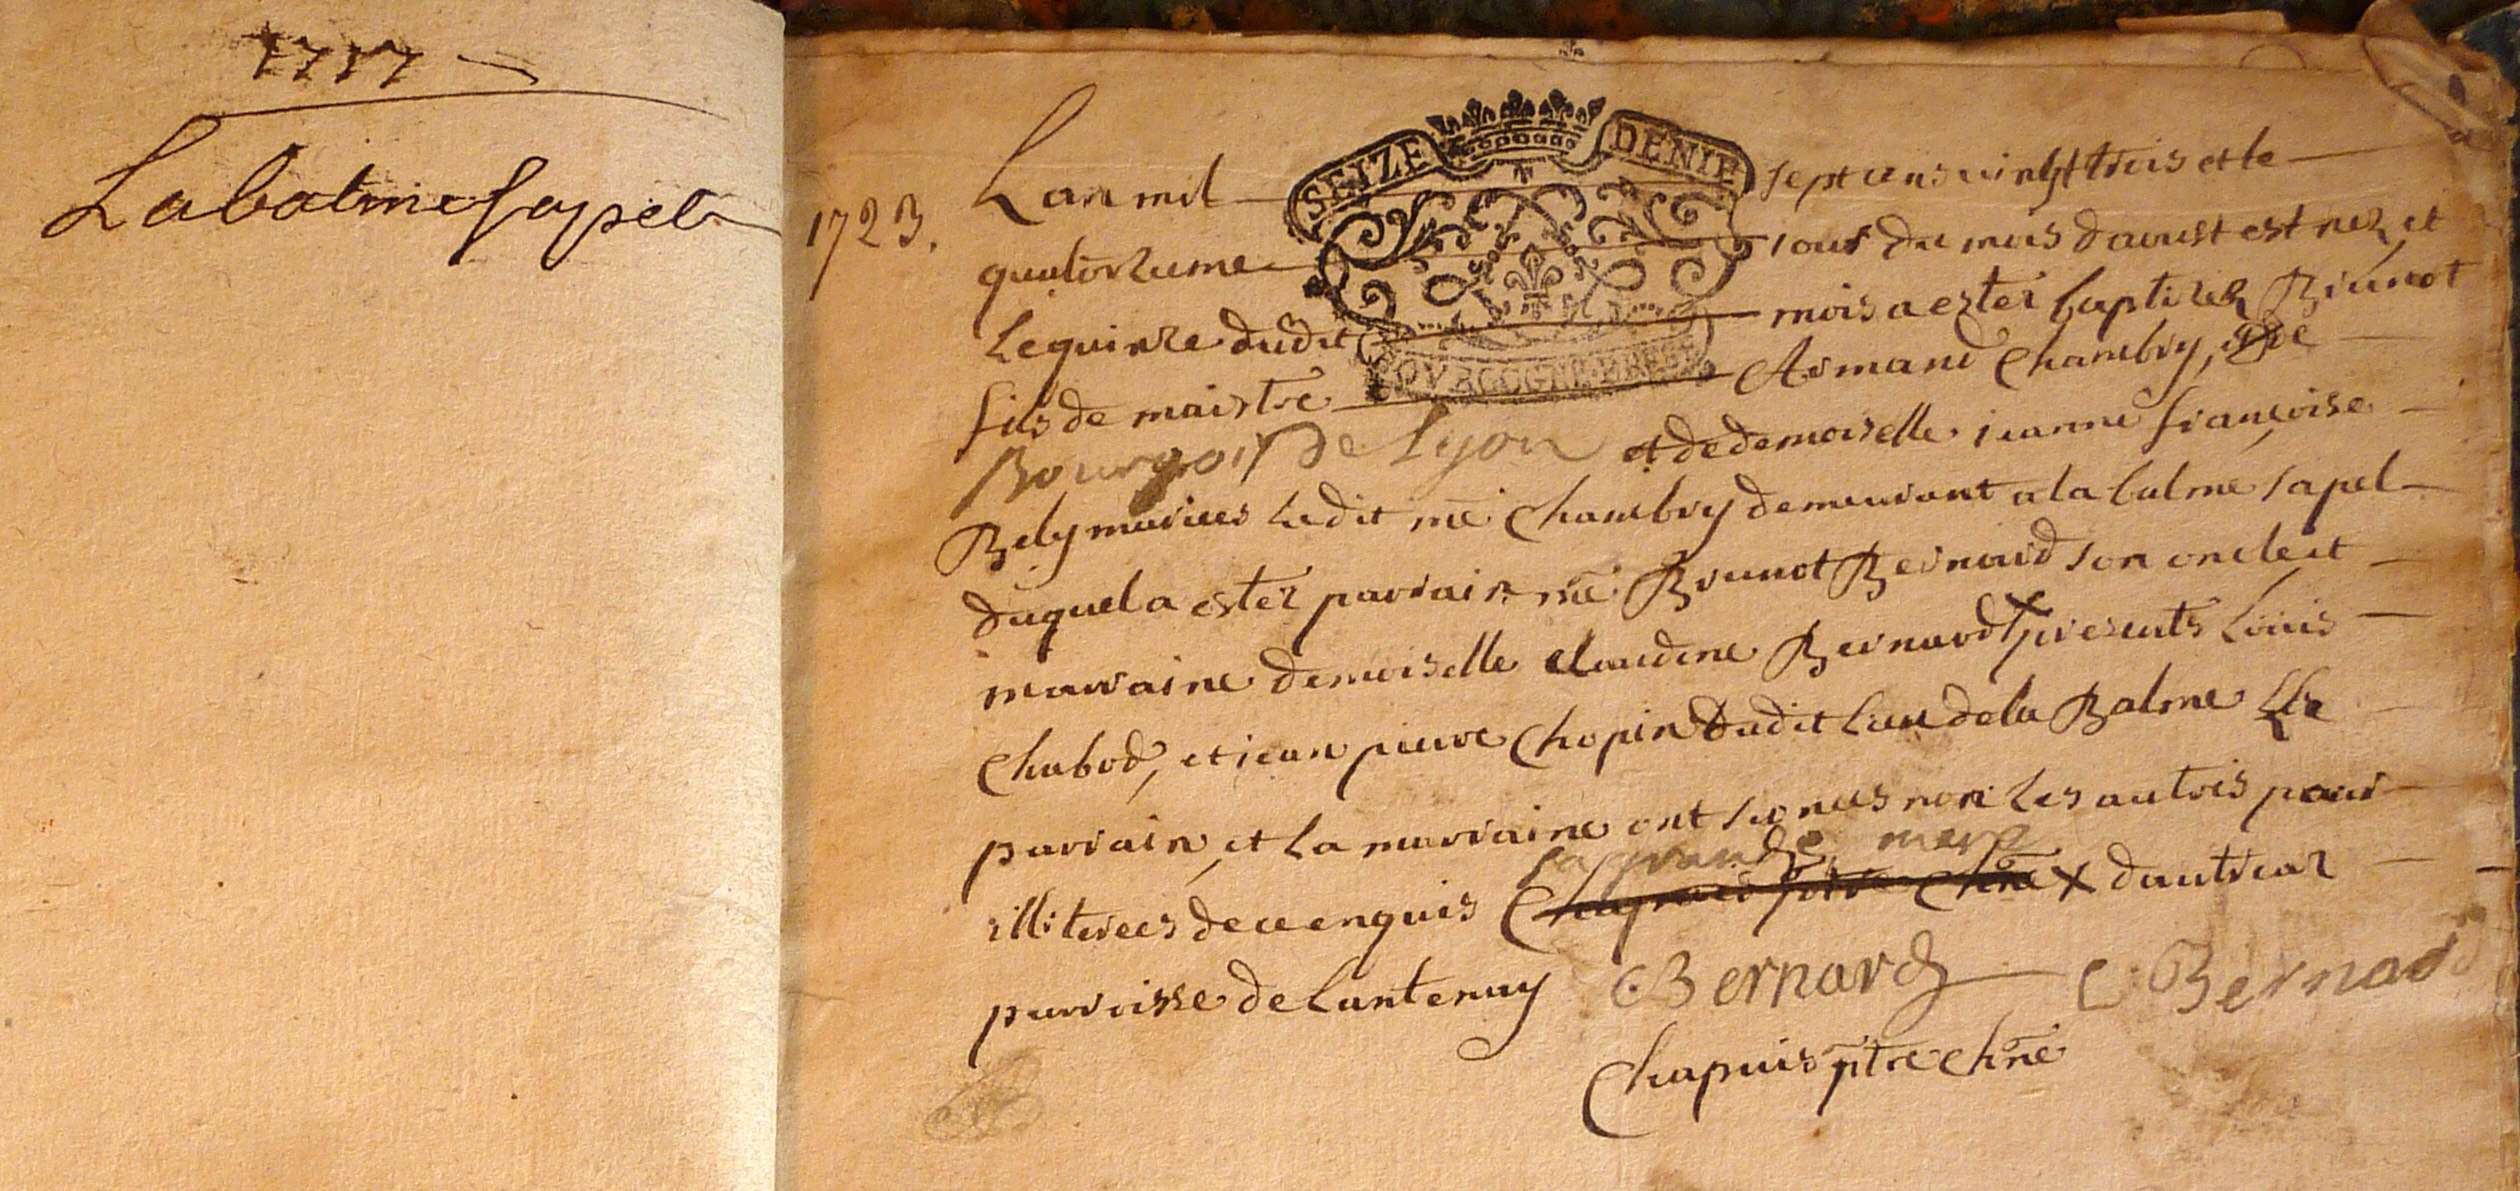 1717
Labalme sapel
1723.
SEIZE DENIE
Lan mil septcens vingt trois et le
quatorzieme iour du mois daoust est nez et
Le quinze dudit mois a estez baptizez Brunot
fils de maistre Armand Chambry,
Bourgois De Lyon et de demoiselle ieanne françoise
Bely mariees Ledit me Chambry demeurant a la balme sapel
duquel a estez parrain me Brunot Bernard son oncle et
marraine demoiselle claudine Bernard X presents Louis
Chabod, et iean pierre Chopin dudit Lieu de la Balme Le
parrain, et La marraine ont signees non Les autres pour
sa grande mere
illiterees de ce enquis X dautrear
parroisse de Lantenay Bernard C Bernard
Chapuis ptre Chne